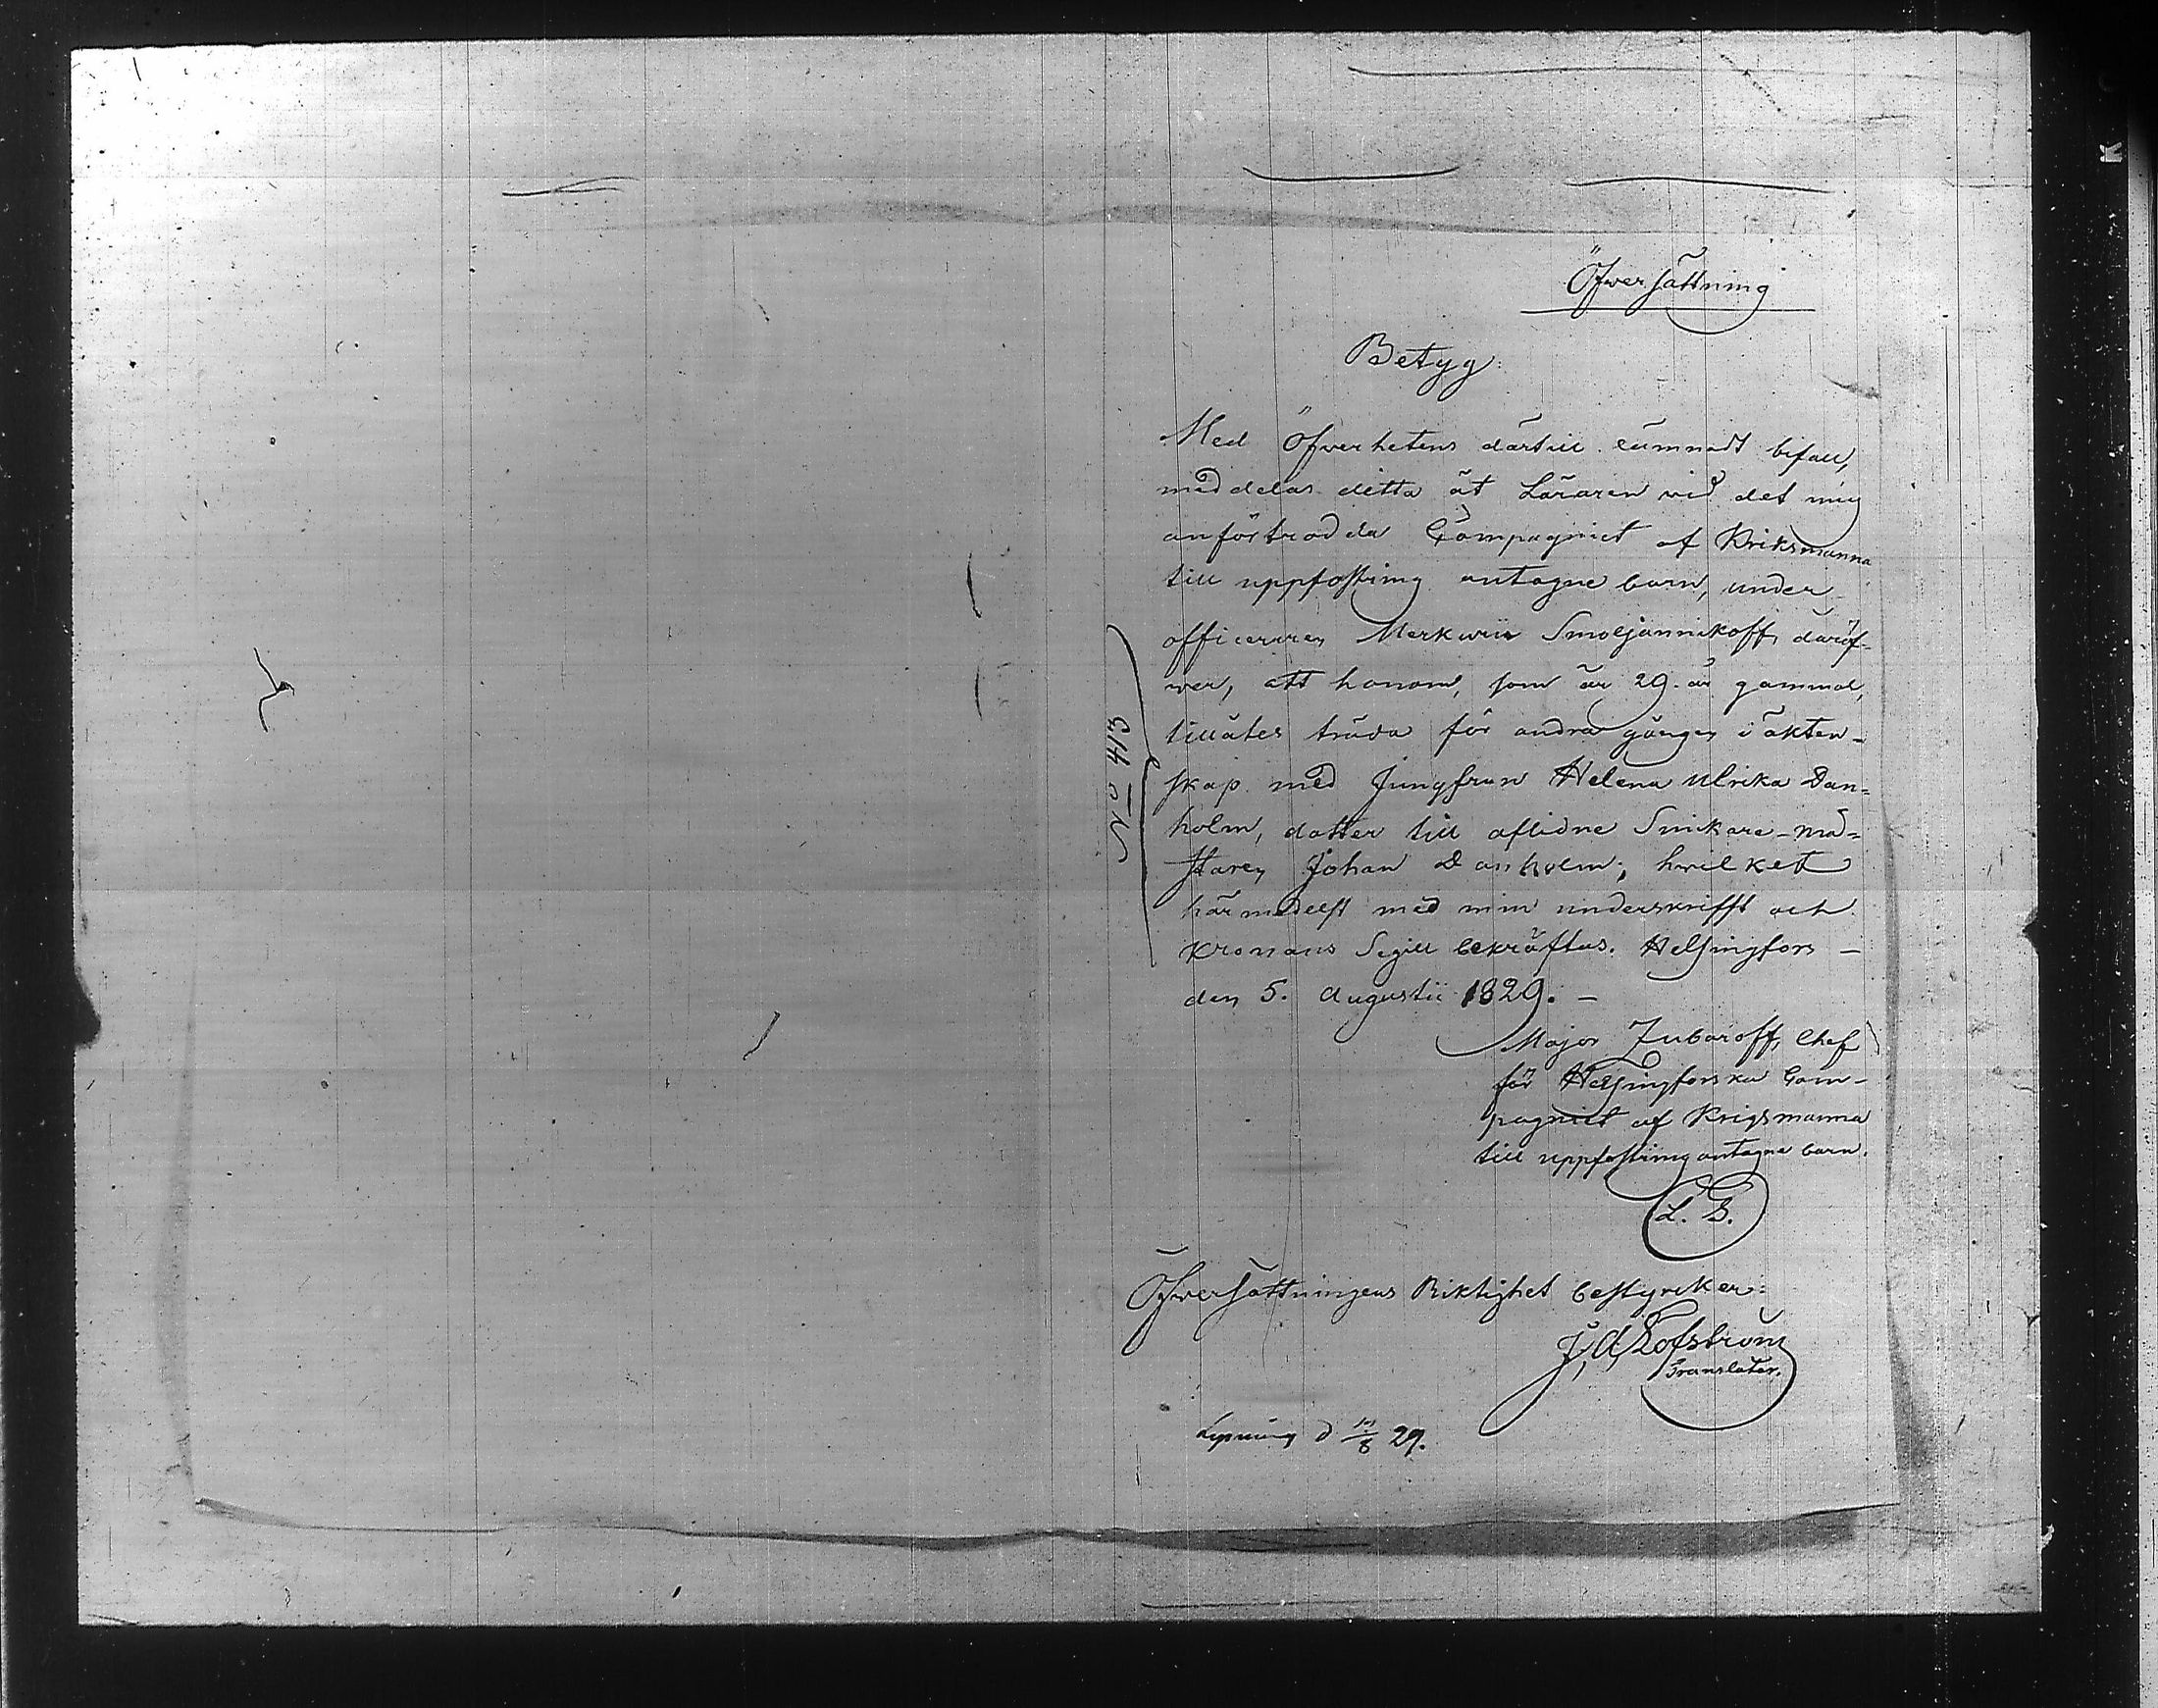 Öfversättning
Betyg:
Med Öfverhetens därtill lämnadt bifall,
meddelas detta åt Läraren vid det mig
anförtrodda Compagniet af Kriksmanna
till uppfostring antagne barn, under
officeraren Merkurii Smoljannikoff, däröf-
wer, att honom, som är 29. år gammal,
tillåtes träda för andra gången i äkten-
skap med Jungfrun Helena Ulrika Dan=
holm, dotter till aflidne Snikare-mä=
staren Johan Danholm; hwilket
härmedelst med min underskrifft och
Kronans Sigill bekräftas. Helsingfors –
den 5. Augustii 1829. –
Major Zubaroff, Chef
för Helsingforska Com-
pagniet af Krigsmanna
till uppfostring antagne barn.
L. S.
No 413
Öfversättningens Riktighet bestyrker:
J. A. Lofström
Translator.
Lysning d 29.